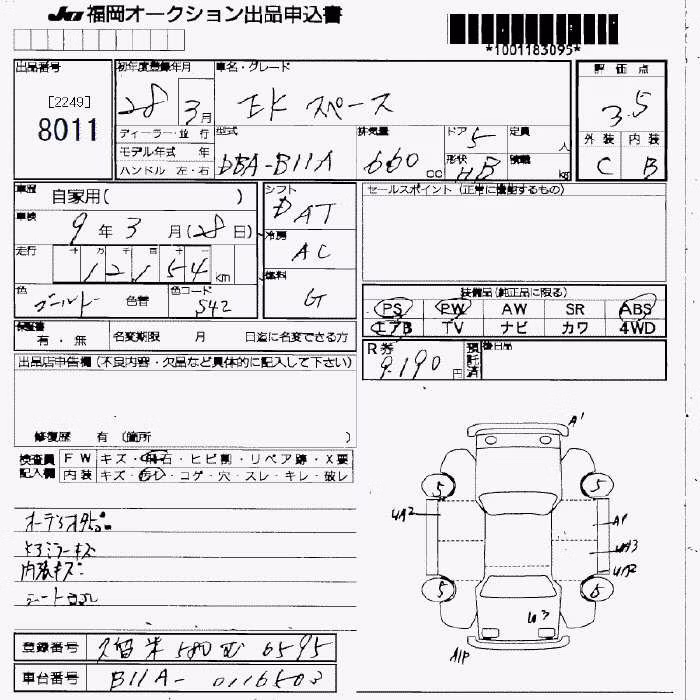 JU 福岡オークション出品申込書
*1001183095*
出品番号
[2249]
8011
初年度登録年月
28 3月
車名・グレード
EK スペース
評価点
3.5
外装 内装
C B
ディーラー・並行
モデル年式 年
ハンドル 左・右
型式
DBA-B11A
排気量
660 cc
ドア
5
形状
HB
定員
人
積載
kg
車歴
自家用( )
車検
9年 3月(28日)
走行
十万千百十一
12154 km
色
ゴールド 色替
色コード
S42
シフト
DAT
冷房
AC
燃料
G
セールスポイント (正常に機能するもの)
装備品(純正品に限る)
PS PW AW SR ABS
エアB TV ナビ カワ 4WD
保証書
有・無
名変期限 月 日迄に名変できる方
R券
9,190円
預託済
後日品
出品店申告欄(不良内容・欠品など具体的に記入して下さい)
修復歴 有 (箇所 )
検査員 FW キズ・飛石・ヒビ割・リペア跡・X要
記入欄 内装 キズ・汚レ・コゲ・穴・スレ・キレ・破レ
ドアミラーキズ
内張キズ
A1
5 5
UA2
A1
UA3
UA2
5 5
U3
A1P
登録番号 久留米 580 む 6595
車台番号 B11A-0116503